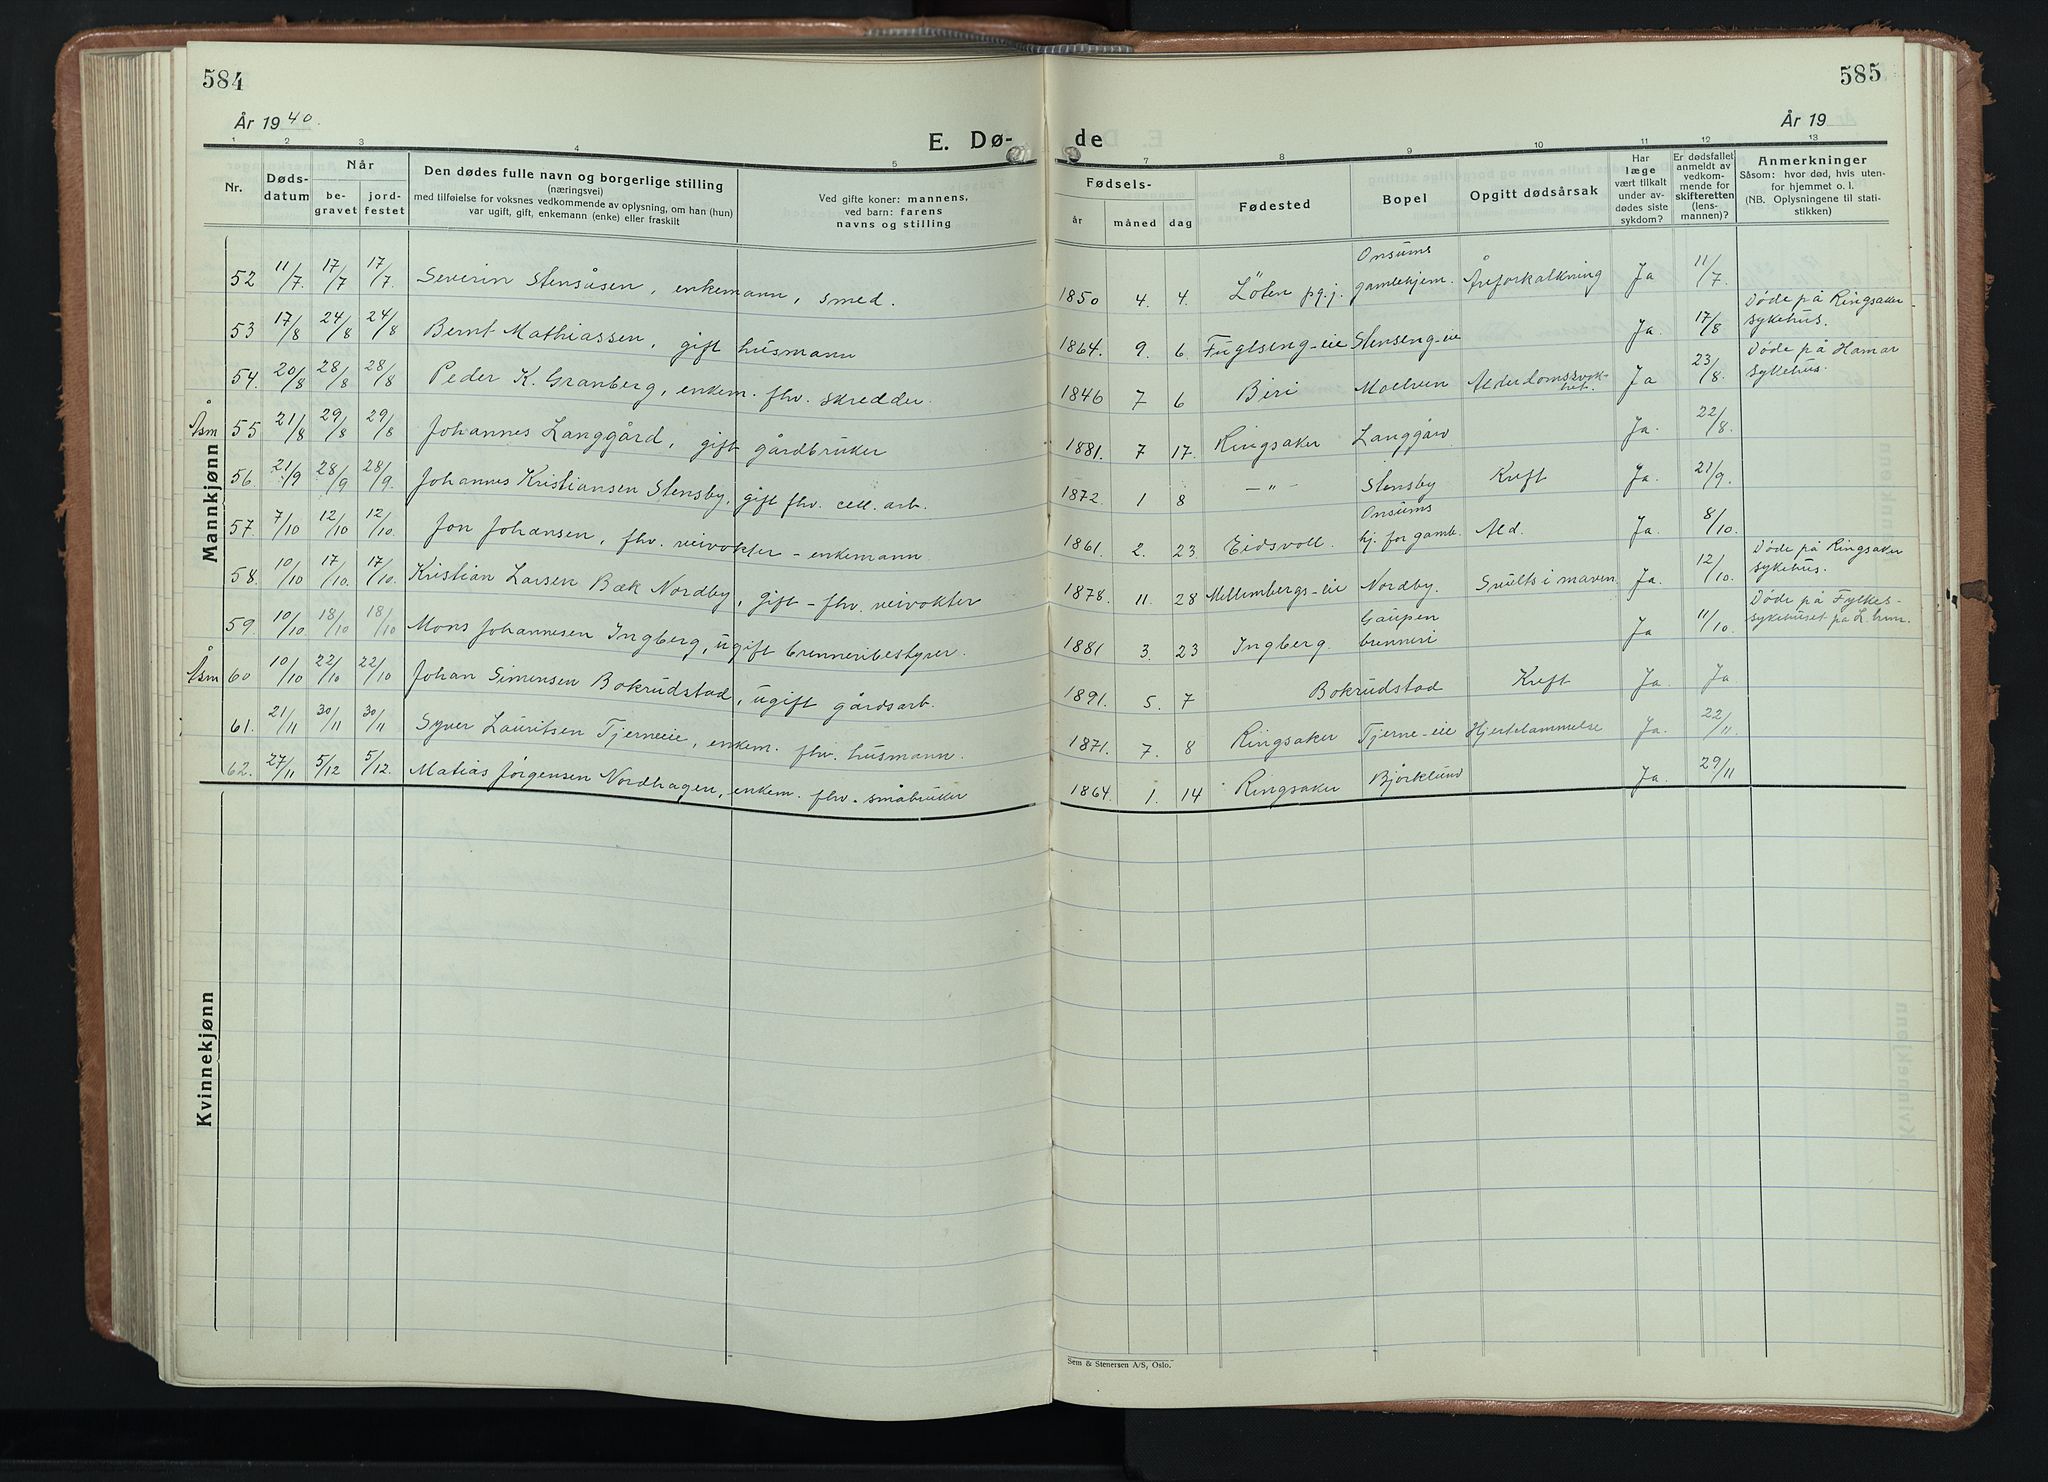 584
585
År 1940.
År 19
E. Dø-de
1 2 3 4 5 7 8 9 10 11 12 13
Nr.
Dødsdatum
Når
begravet
jordfestet
Den dødes fulle navn og borgerlige stilling
(næringsvei)
med tilføielse for voksnes vedkommende av oplysning, om han (hun)
var ugift, gift, enkemann (enke) eller fraskilt
Ved gifte koner: mannens,
ved barn: farens
navns og stilling
Fødsels-
år måned dag
Fødested
Bopel
Opgitt dødsårsak
Har læge vært tilkalt under avdødes siste sykdom?
Er dødsfallet anmeldt av vedkommende for skifteretten (lensmannen)?
Anmerkninger
Såsom: hvor død, hvis utenfor hjemmet o. l.
(NB. Oplysningene til statistikken)
Mannkjønn
52 11/7 17/7 17/7 Severin Stensåsen, enkemann, smed. 1850 4. 4. Löten pg.j. Onsums gamlehjem. Åreforkalkning Ja 11/7
53 17/8 24/8 24/8 Bernt Mathiassen, gift husmann 1864. 9. 6. Fuglseng-eie Stenseng-eie Ja. 17/8 Døde på Ringsaker sykehus.
54. 20/8 28/8 28/8 Peder K. Granberg, enkem. fhv. skredder. 1846 7 6 Biri Moelven Alderdomssvakhet. Ja 23/8. Døde på Hamar sykehus.
Åsm 55 21/8 29/8 29/8 Johannes Langgård, gift gårdbruker 1881. 7 17. Ringsaker Langgård Ja. 22/8.
56. 21/9 28/9 28/9. Johannes Kristiansen Stensby, gift fhv. cell. arb. 1872. 1 8 -"- Stensby Kreft Ja. 21/9.
57. 7/10 12/10 12/10 Jon Johansen, fhv. veivokter - enkemann. 1861. 2. 23. Eidsvoll. Onsums hj. for gamle. Ald. Ja 8/10.
58. 10/10 17/10. 17/10. Kristian Larsen Bæk Nordby, gift - fhv. veivokter 1878. 11. 28 Mellembergs-eie Nordby. Svulst i maven Ja. 12/10. Døde på Ringsaker sykehus.
59. 10/10 18/10 18/10 Mons Johannesen Ingberg, ugift brenneribestyrer. 1881 3. 23 Ingberg. Gaupen brenneri Ja 11/10. Døde på Fylkessykehuset på L.hmr.
Åsm 60 10/10 22/10 22/10 Johan Simensen Bokrudstad, ugift gårdsarb. 1891. 5. 7 Bokrudstad Kreft Ja. Ja
61. 21/11 30/11 30/11 Syver Lauritsen Tjerneie, enkem. fhv. husmann. 1871. 7. 8 Ringsaker Tjerne-eie Hjertelammelse Ja. 22/11.
62. 27/11 5/12 5/12. Matias Jørgensen Nordhagen, enkem. fhv. småbruker 1864. 1. 14 Ringsaker Björklund Ja. 29/11
Kvinnekjønn
Sem & Stenersen A/S, Oslo.